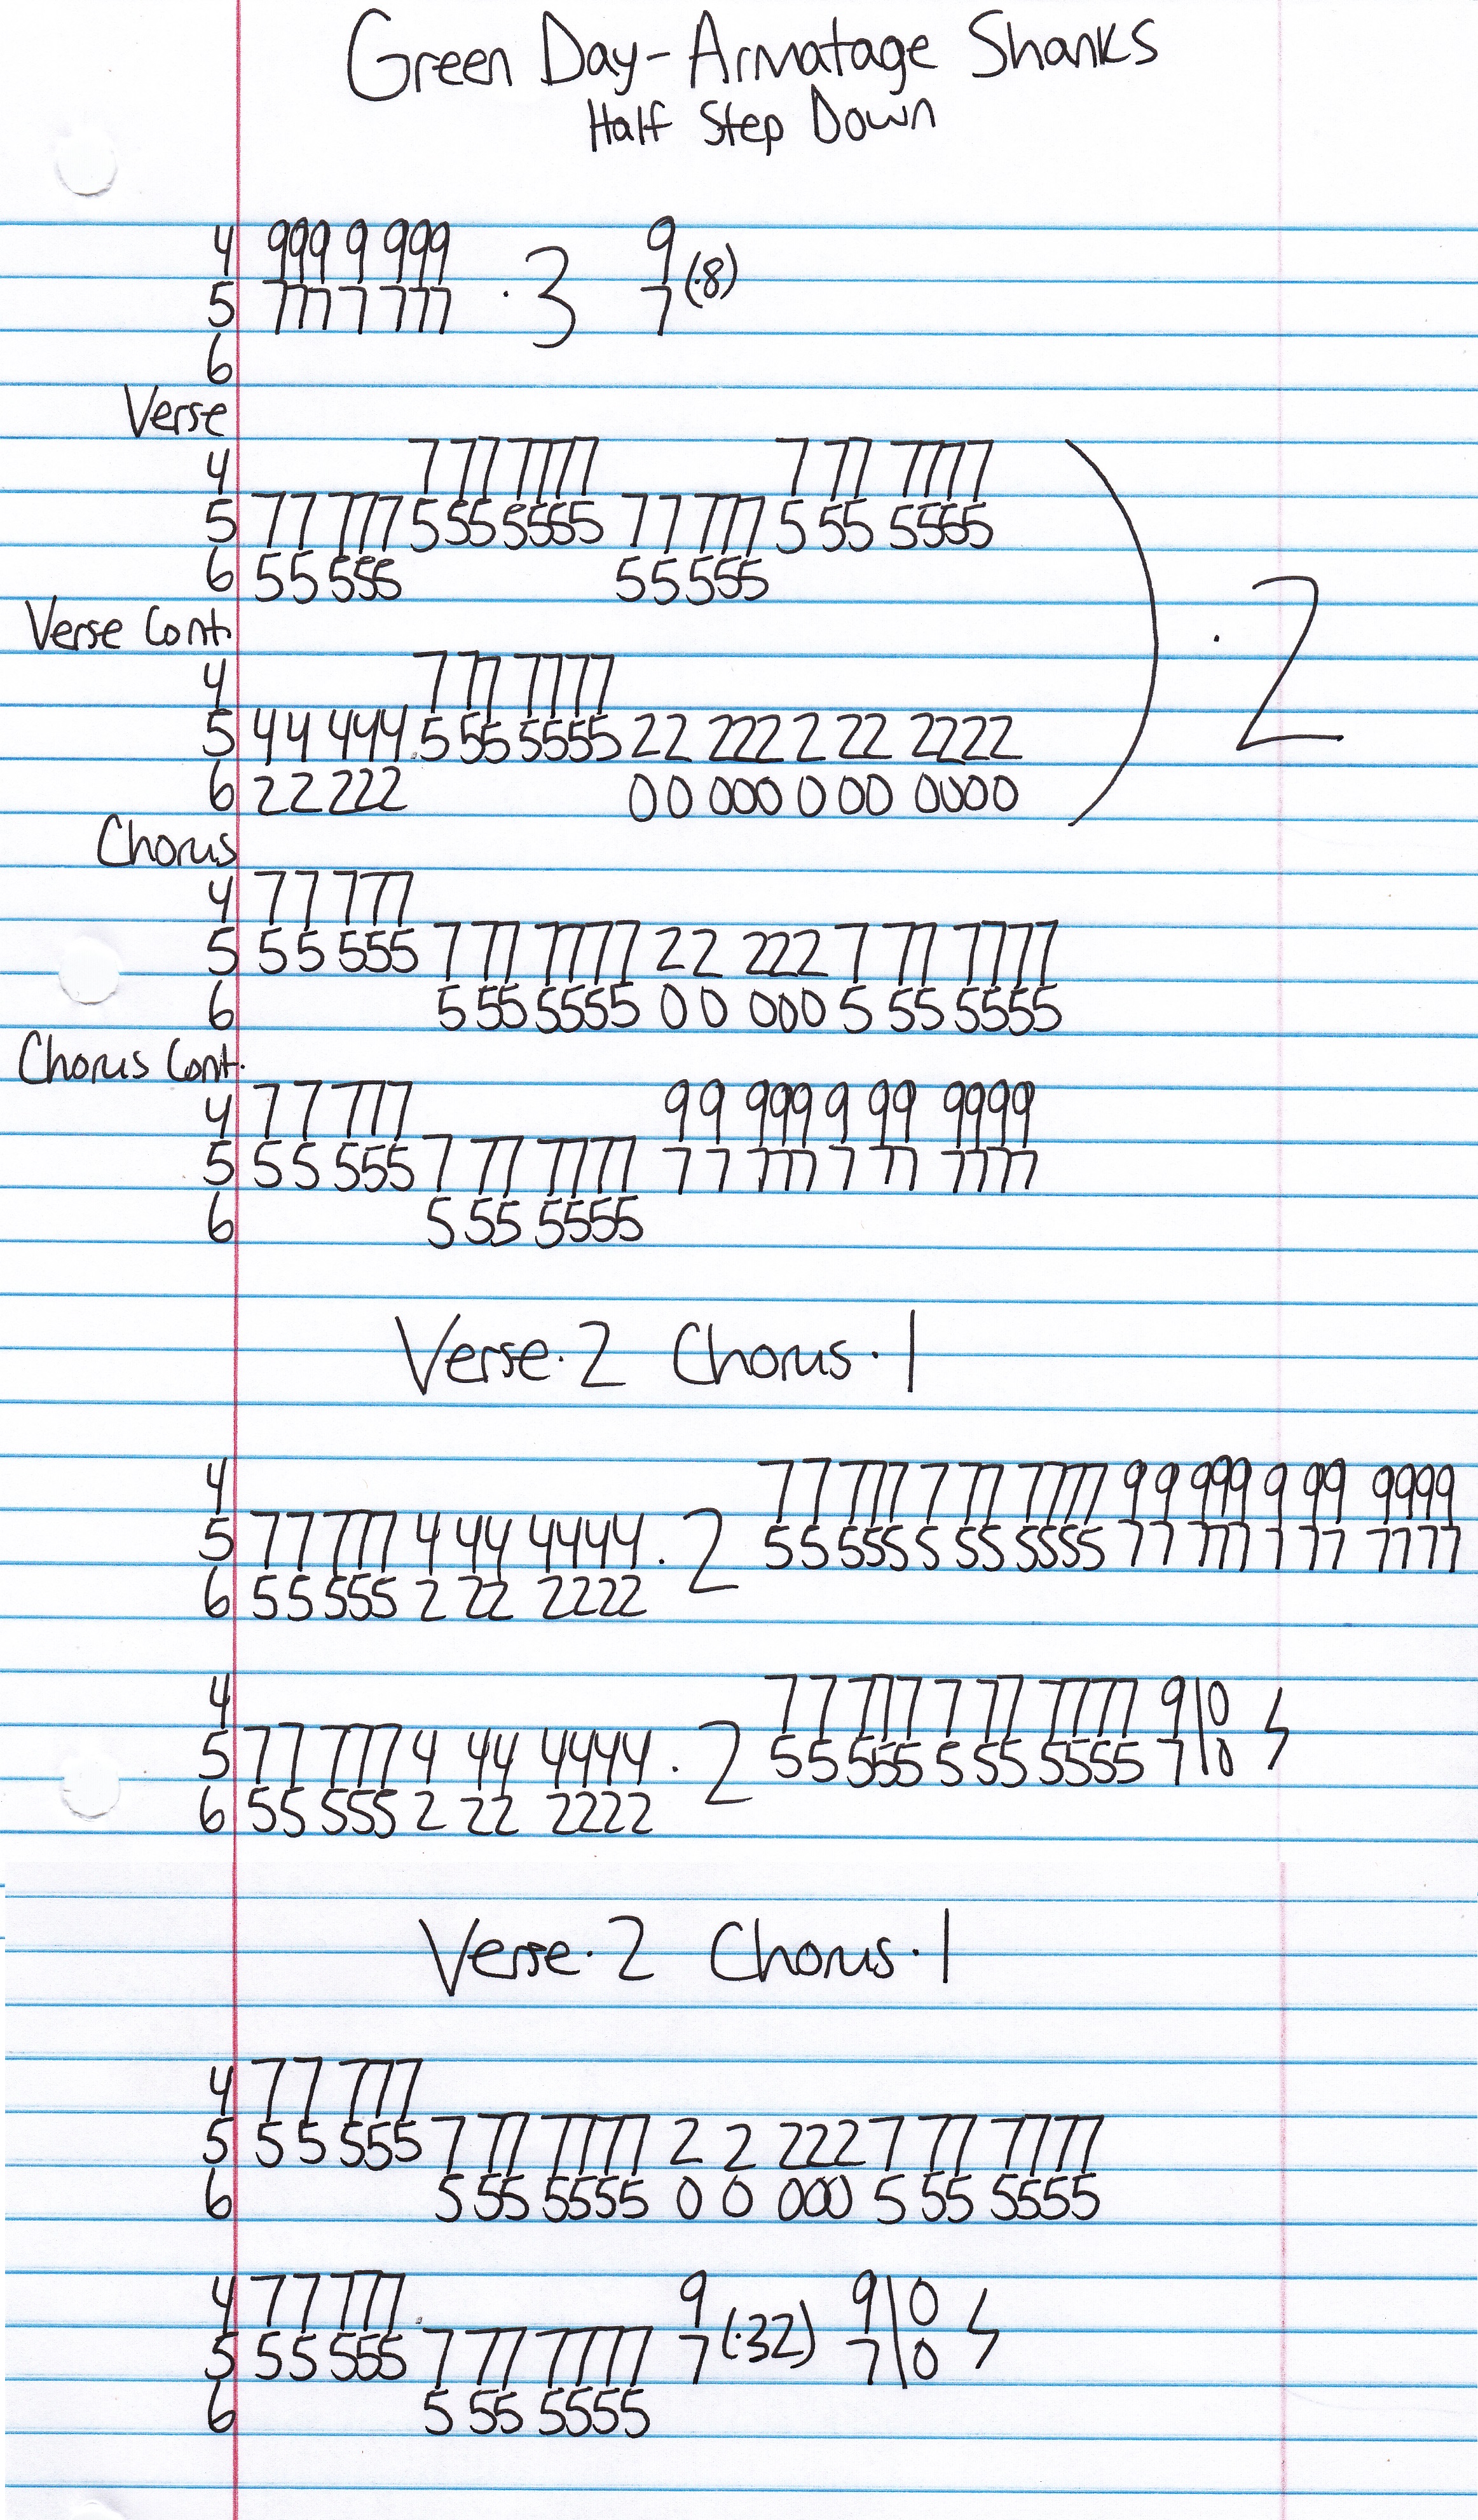 Green Day - Armatage Shanks
Half Step Down
4 999 9 999 · 3 9 (·8)
5 777 7 777 7
6
Verse
4 7 77 7777 7 77 7777
5 77 777 5 55 5555 77 777 5 55 5555 ) · 2
6 55 555 55 555
Verse Cont.
4 7 77 7777
5 44 444 5 55 5555 22 222 2 22 2222
6 22 222 00 000 0 00 0000
Chorus
4 77 777
5 55 555 7 77 7777 22 222 7 77 7777
6 5 55 5555 00 000 5 55 5555
Chorus Cont.
4 77 777 99 999 9 99 9999
5 55 555 7 77 7777 77 777 7 77 7777
6 5 55 5555
Verse · 2 Chorus · 1
4 77 777 7 77 7777 99 999 9 99 9999
5 77 777 4 44 4444 · 2 55 555 5 55 5555 77 777 7 77 7777
6 55 555 2 22 2222
4 77 777 7 77 7777 9\0
5 77 777 4 44 4444 · 2 55 555 5 55 5555 7\0
6 55 555 2 22 2222
Verse · 2 Chorus · 1
4 77 777
5 55 555 7 77 7777 2 2 222 7 77 7777
6 5 55 5555 0 0 000 5 55 5555
4 77 777 9 (·32) 9\0
5 55 555 7 77 7777 7 7\0
6 5 55 5555